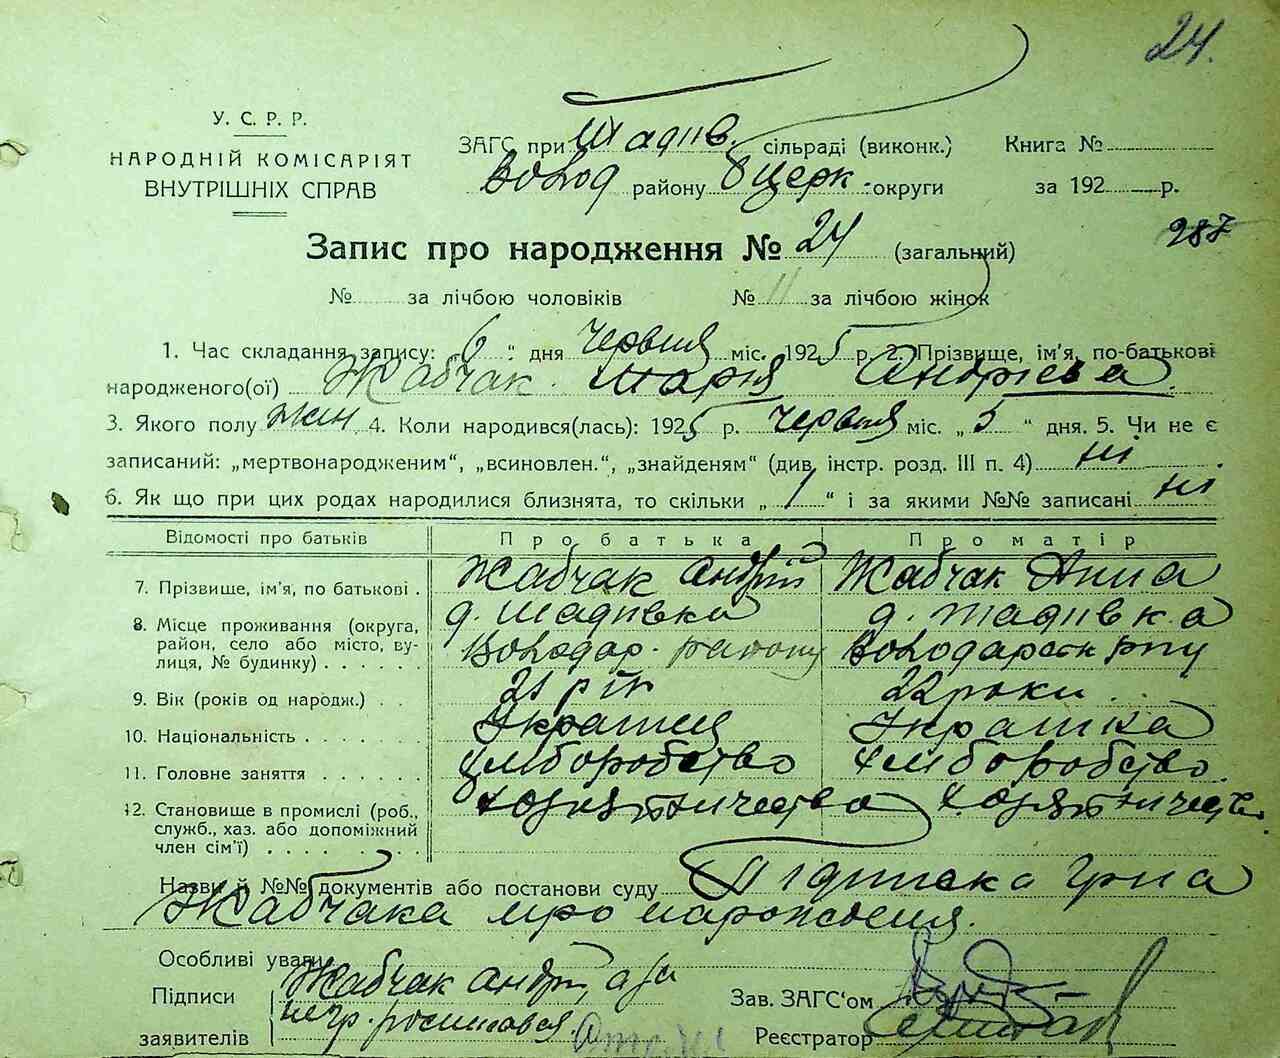 24.
У. С. Р. Р.
НАРОДНІЙ КОМІСАРІЯТ
ВНУТРІШНІХ СПРАВ
ЗАГС при Тадіїв. сільраді (виконк.) Книга №
Волод району Бцерк. округи за 192 р.
287
Запис про народження № 24 (загальний)
№ за лічбою чоловіків № 11 за лічбою жінок
1. Час складання запису: „6“ дня червня міс. 1925 р. 2. Прізвище, ім'я, по-батькові
народженого(ої) Жабчак Марія Андрієва
3. Якого полу жін. 4. Коли народився(лась): 1925 р. червня міс. „5“ дня. 5. Чи не є
записаний: „мертвонародженим“, „всиновлен.“, „знайденям“ (див. інстр. розд. III п. 4) ні
6. Як що при цих родах народилися близнята, то скільки „1“ і за якими №№ записані ні
Відомості про батьків Про батька Про матір
7. Прізвище, ім'я, по батькові . Жабчак Андрій Жабчак Анна
8. Місце проживання (округа, район, село або місто, вулиця, № будинку) . . . . . д. Тадіївка Володар. району д. Тадіївка Володарськ р-ну
9. Вік (років од народж.) . . 21 рік 22 роки
10. Національність . . . . . . Українка
11. Головне заняття . . . . . . хліборобство хліборобство
12. Становище в промислі (роб., служб., хаз. або допоміжний член сім'ї) . . . . . . .
Назви й №№ документів або постанови суду Підписка Гр-на
Жабчака про народження.
Особливі уваги
Підписи Жабчак Андрій, а за Зав. ЗАГС'ом
заявителів Реєстратор